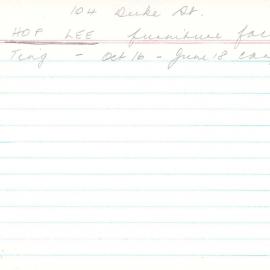 104 Duke St.
HOP LEE furniture fac
Ting - Oct 16 - June 18 can